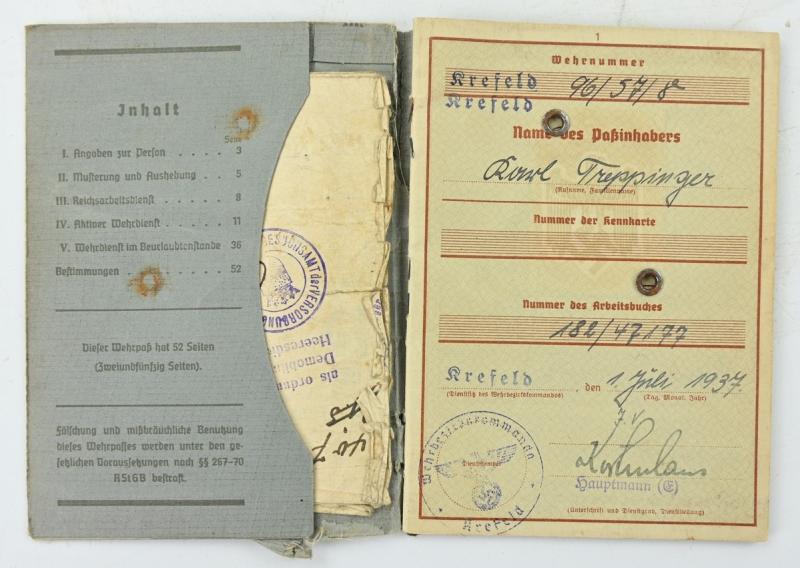 Inhalt
Seite
I. Angaben zur Person . . . . 3
II. Musterung und Aushebung . . 5
III. Reichsarbeitsdienst . . . . 8
IV. Aktiver Wehrdienst . . . . 11
V. Wehrdienst im Beurlaubtenstande 36
Bestimmungen . . . . . 52
Dieser Wehrpaß hat 52 Seiten
(Zweiundfünfzig Seiten).
Fälschung und mißbräuchliche Benutzung
dieses Wehrpasses werden unter den ge-
setzlichen Voraussetzungen nach §§ 267-70
RStGB bestraft.
der VERSORGUNG
als
Demobil
Heeres
1
Wehrnummer
Krefeld 96/57/8
Krefeld
Name des Paßinhabers
Karl Treppinger
(Rufname, Familienname)
Nummer der Kennkarte
Nummer des Arbeitsbuches
182/47177
Krefeld, den 1. Juli 1937.
(Dienstsitz des Wehrbezirkskommandos) (Tag, Monat, Jahr)
Wehrbezirkskommando
Krefeld
Dienststempel
J.V.
Hauptmann (E)
(Unterschrift und Dienstgrad, Dienststellung)